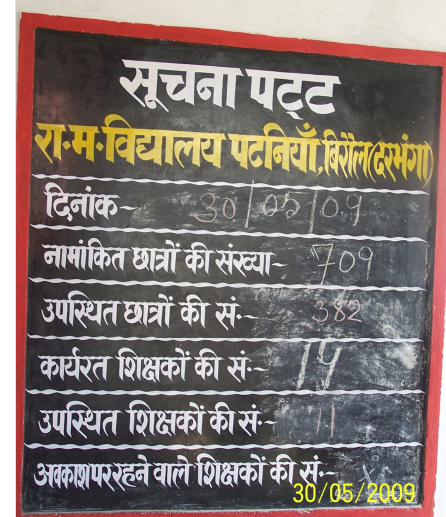 सूचना पट्ट
रा·म·विद्यालय पटनियाँ,बिरौल(दरभंगा)
दिनांक- 30/05/09
नामांकित छात्रों की संख्या- 709
उपस्थित छात्रों की सं·- 382
कार्यरत शिक्षकों की सं·- 14
उपस्थित शिक्षकों की सं·- 11
अवकाश पर रहने वाले शिक्षकों की सं·-
30/05/2009